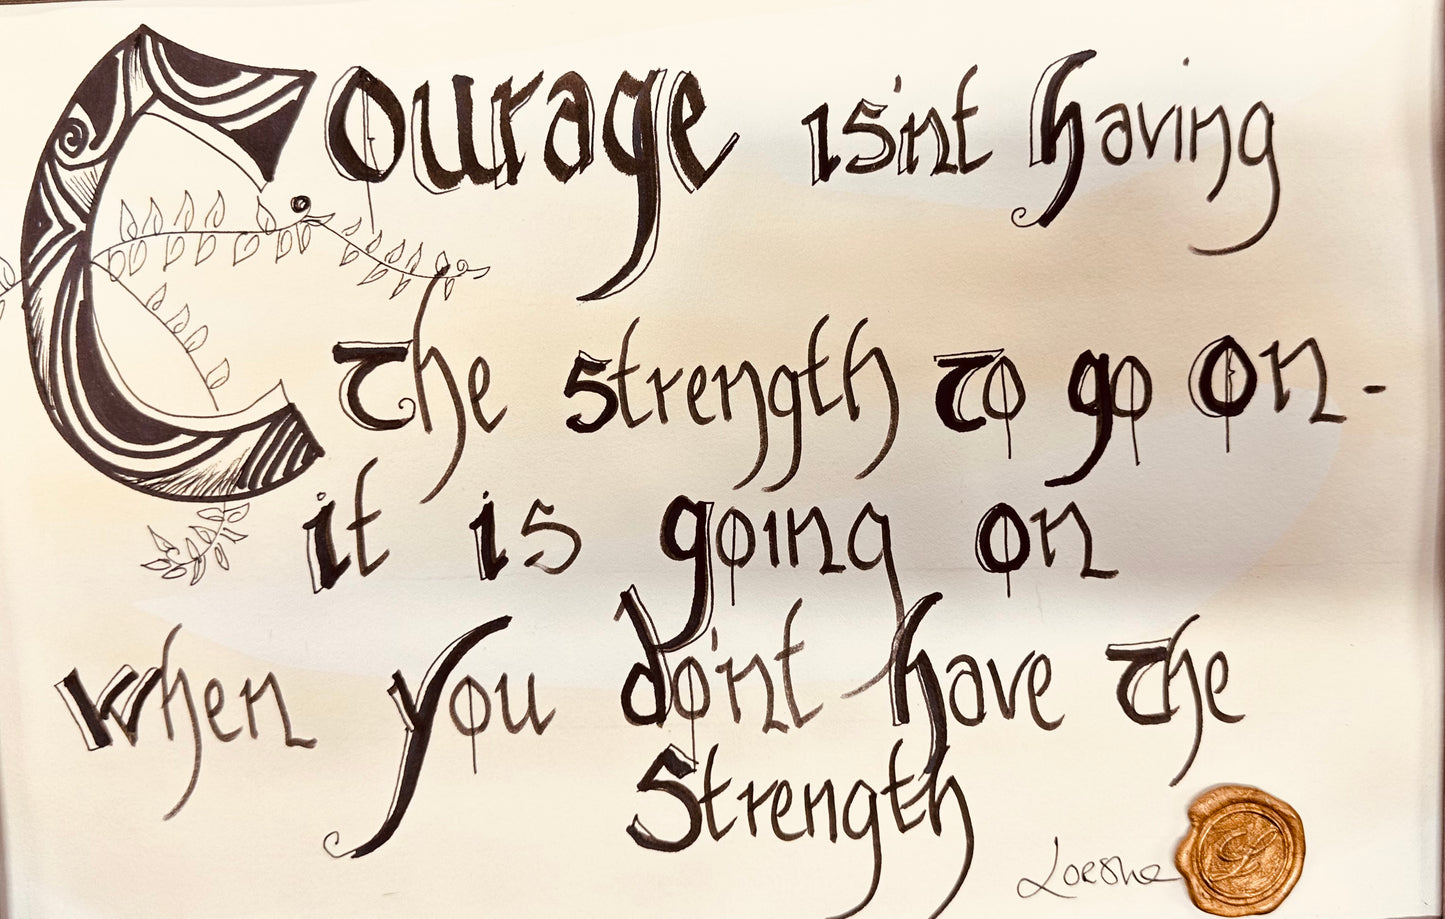 Courage is'nt having
the strength to go on -
it is going on
when you do'nt have the
strength